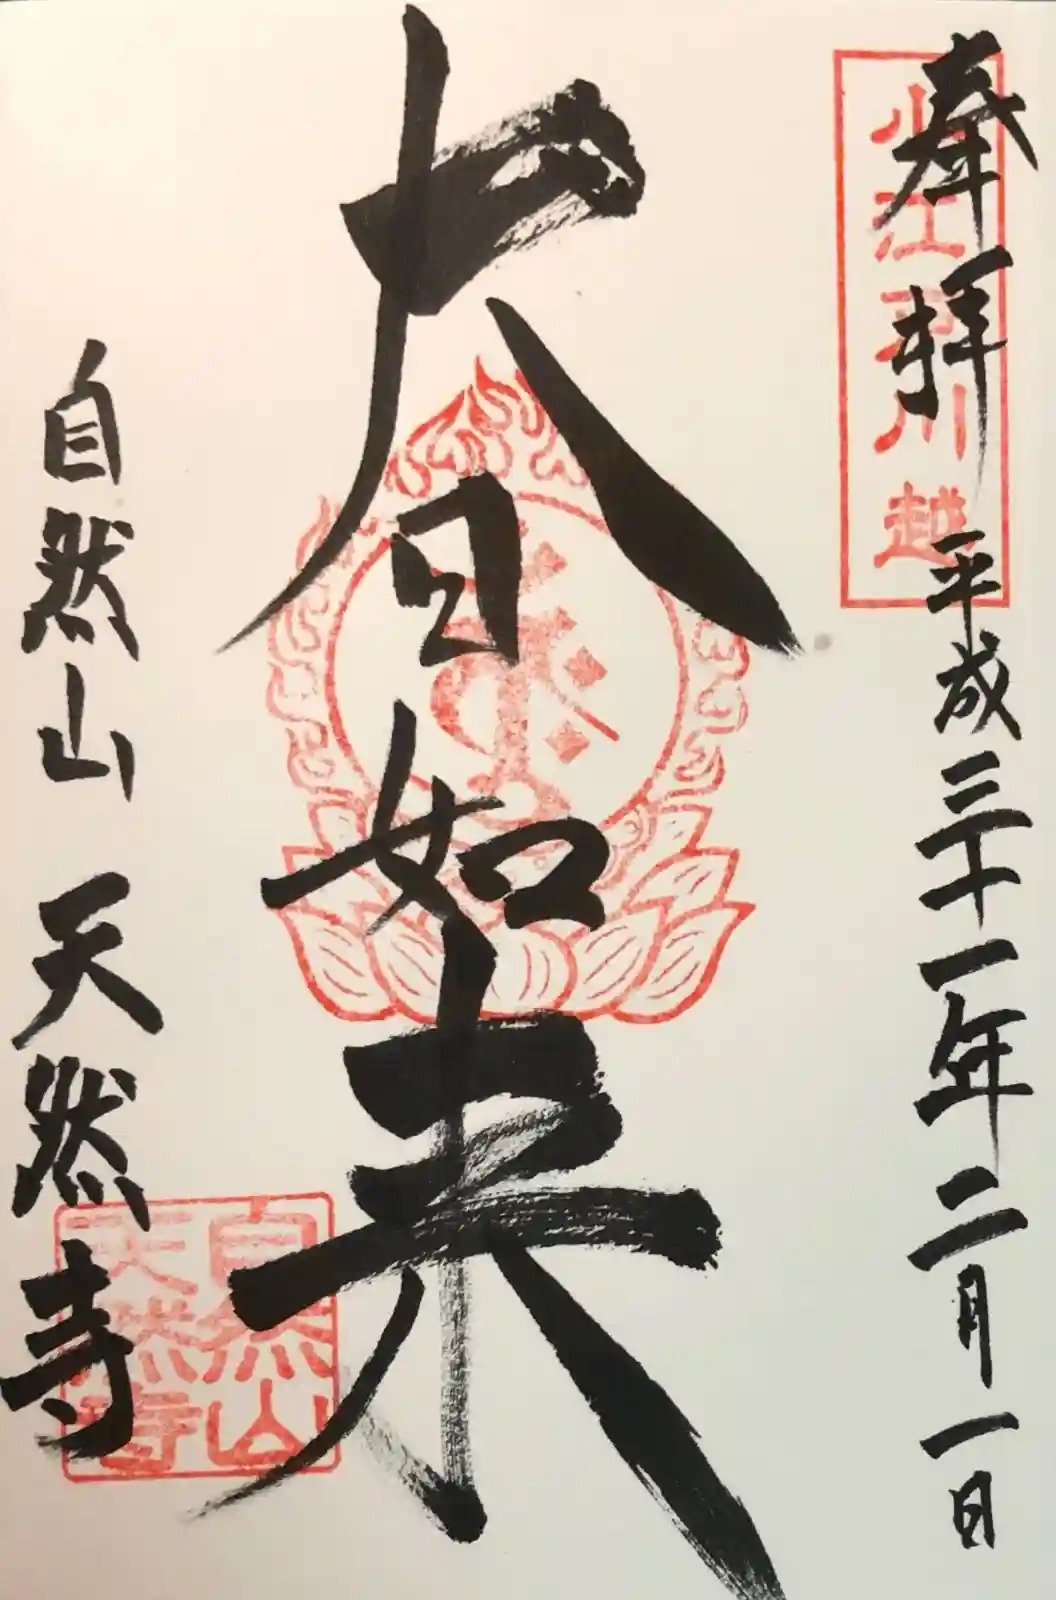 奉拝
小江戸川越
平成三十一年二月一日
大日如来
自然山 天然寺
自然山
天然寺